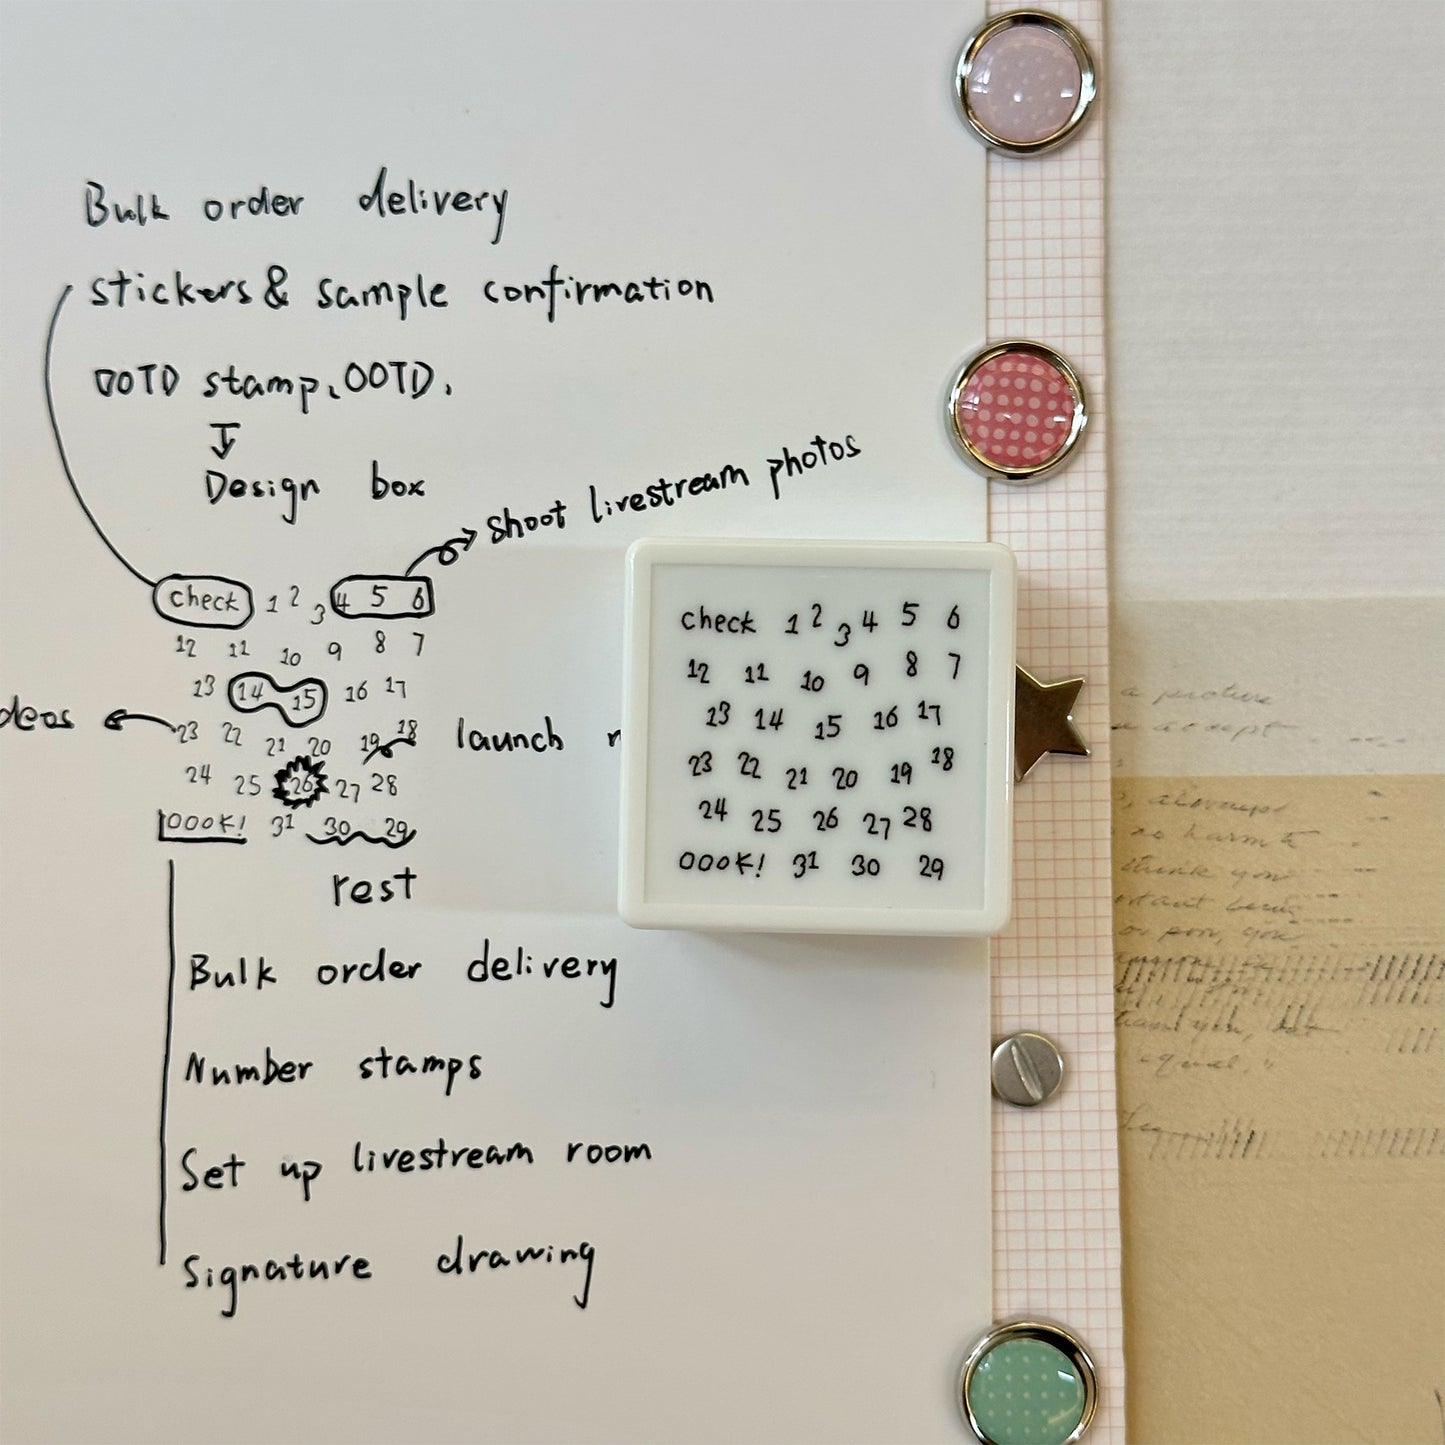 Bulk order delivery
stickers & sample confirmation
OOTD stamp、OOTD、
Design box
shoot livestream photos
check 1 2 3 4 5 6
12 11 10 9 8 7
13 14 15 16 17
23 22 21 20 19 18
launch
24 25 26 27 28
OOOK! 31 30 29
rest
Bulk order delivery
Number stamps
Set up livestream room
Signature drawing
check 1 2 3 4 5 6
12 11 10 9 8 7
13 14 15 16 17
23 22 21 20 19 18
24 25 26 27 28
OOOK! 31 30 29
a picture
accept
attempt
no harm to
think you
being
or poor, you
thank you, but
equal."